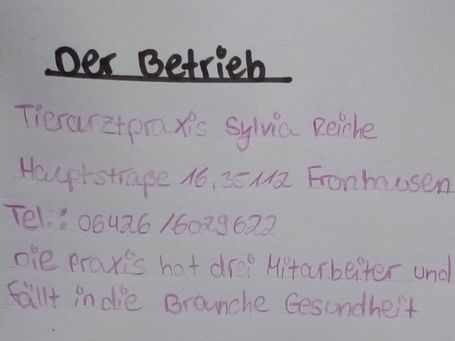 Der Betrieb
Tierarztpraxis Sylvia Reiche
Hauptstraße 16, 35112 Fronhausen
Tel.: 06426 / 6029622
Die Praxis hat drei Mitarbeiter und
fällt in die Braunche Gesundheit